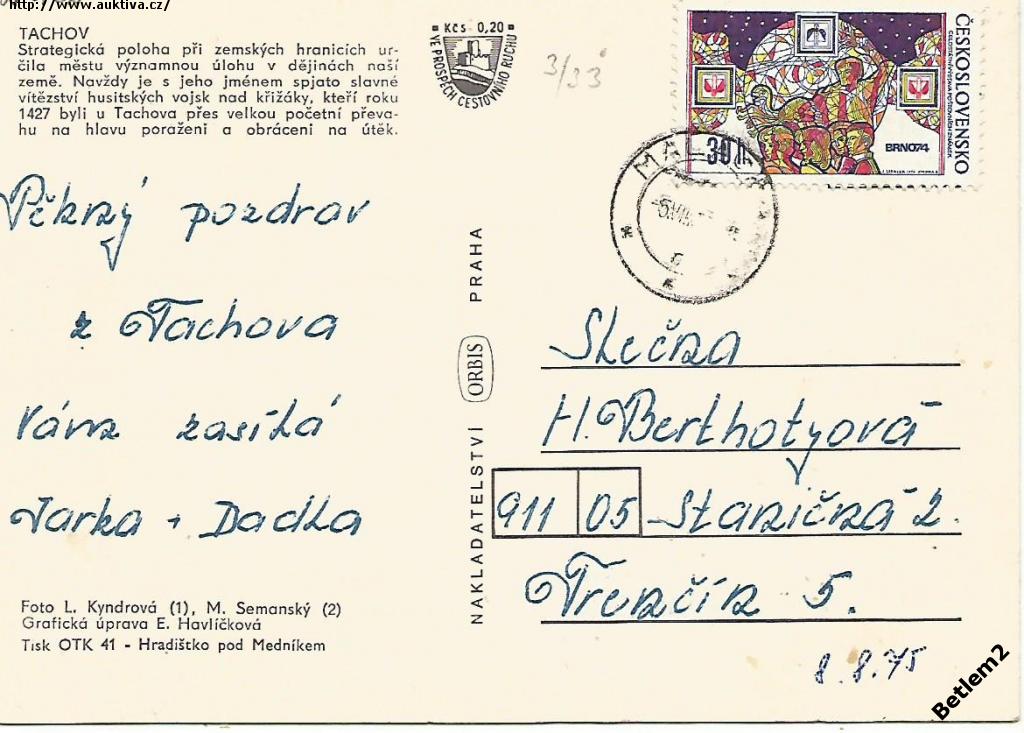 http://www.auktiva.cz/
TACHOV
Strategická poloha při zemských hranicích ur-
čila městu významnou úlohu v dějinách naší
země. Navždy je s jeho jménem spjato slavné
vítězství husitských vojsk nad křižáky, kteří roku
1427 byli u Tachova přes velkou početní převa-
hu na hlavu poraženi a obráceni na útěk.
Kčs 0,20
VE PROSPĚCH CESTOVNÍHO RUCHU
3/33
ČESKOSLOVENSKO
BRNO74
30 h
Pěkný pozdrav
z Tachova
Vám zasílá
Jarka + Dadla
NAKLADATELSTVÍ ORBIS PRAHA
Slečna
H. Berthotyová
911 05 Staničná 2.
Trenčín 5.
8.8.75
Foto L. Kyndrová (1), M. Semanský (2)
Grafická úprava E. Havlíčková
Tisk OTK 41 - Hradištko pod Medníkem
Betlem2